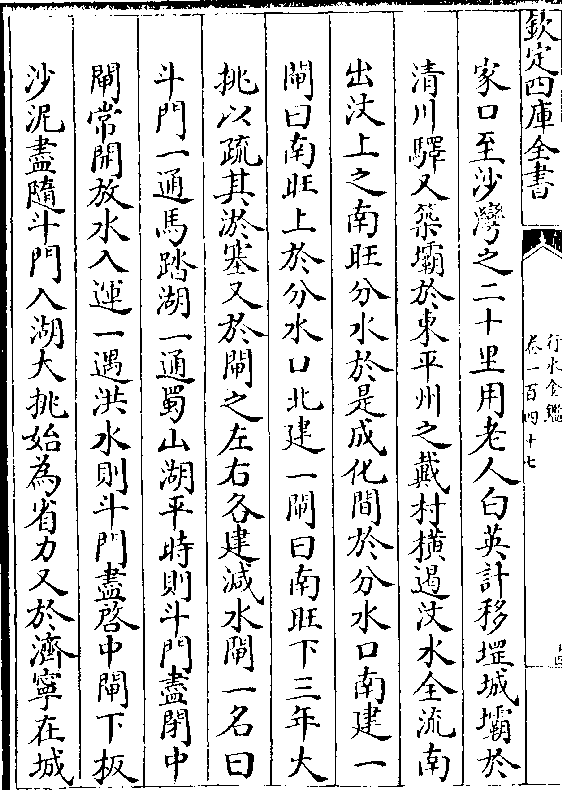 欽定四庫全書
行水金鑑
卷一百四十七
家口至沙灣之二十里用老人白英計移堽城壩於
清川驛又築壩於東平州之戴村橫遏汶水全流南
出汶上之南旺分水於是成化間於分水口南建一
閘曰南旺上於分水口北建一閘曰南旺下三年大
挑以疏其淤塞又於閘之左右各建減水閘一名曰
斗門一通馬踏湖一通蜀山湖平時則斗門盡閉中
閘常開放水入運一遇洪水則斗門盡啓中閘下板
沙泥盡隨斗門入湖大挑始為省力又於濟寧在城